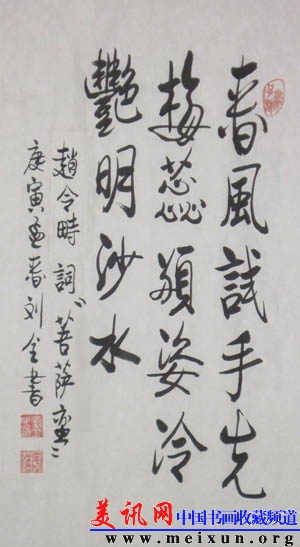 春風試手先
梅蕊頩姿冷
艷明沙水
趙令時 詞《菩萨蛮》
庚寅孟春刘金書
美讯网 中国书画收藏频道
www.meixun.org